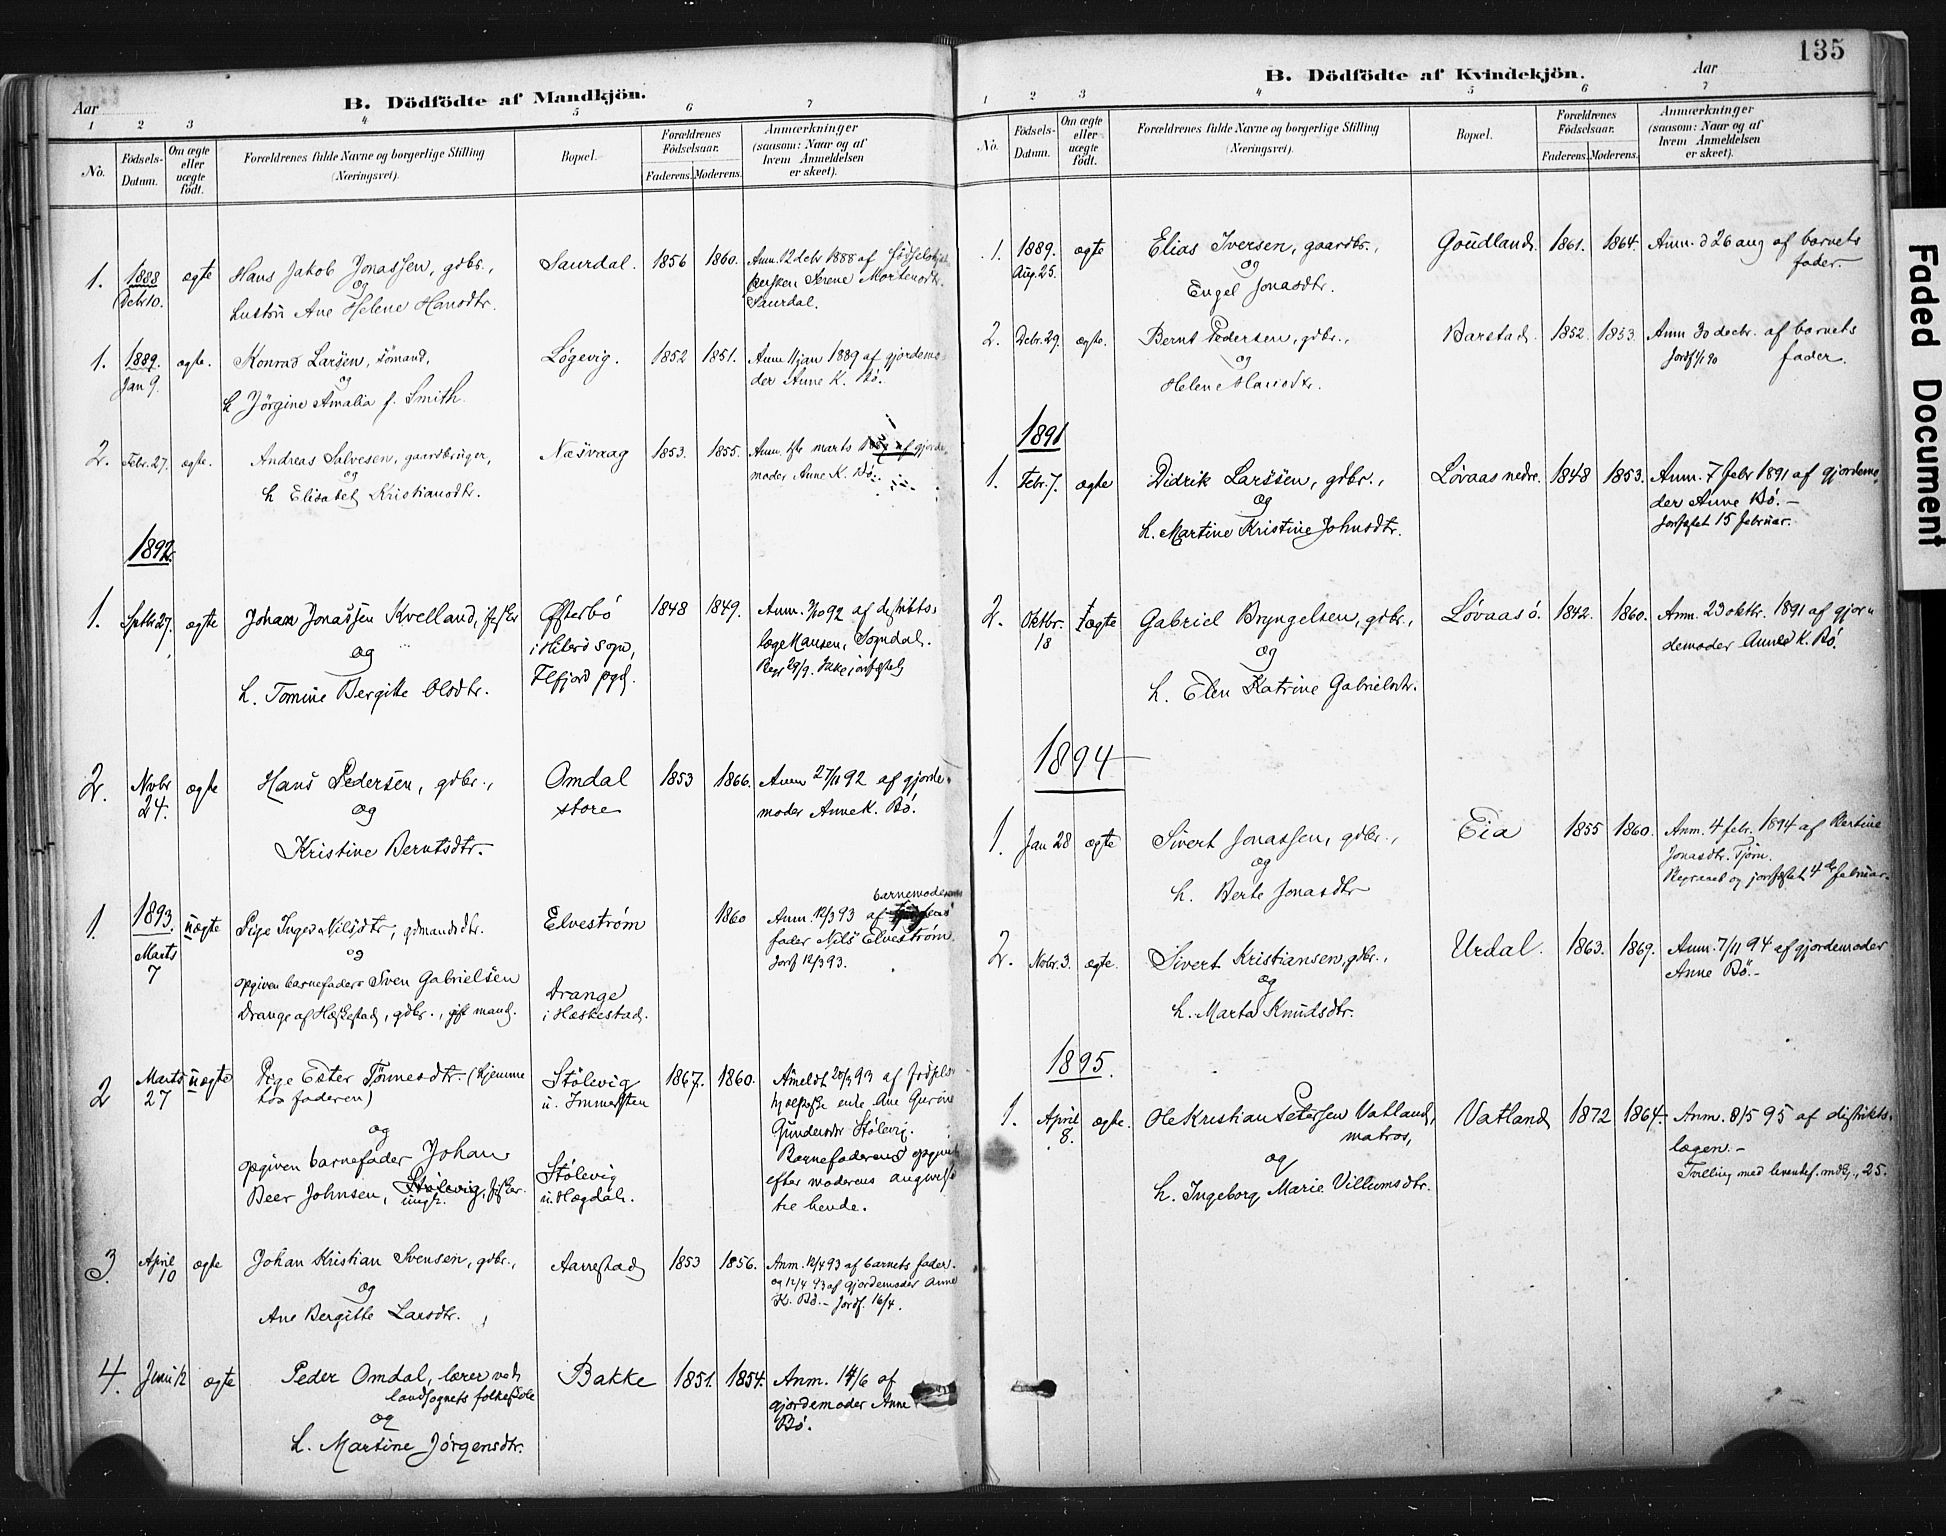 Aar
B. Dödfödte af Mandkjön.
1 2 3 4 5 6 7
No.
Födsels-
Datum.
Om ægte
eller
uægte
födt.
Forældrenes fulde Navne og borgerlige Stilling
(Næringsvei).
Bopæl.
Forældrenes
Födselsaar.
Faderens. Moderens.
Anmærkninger
(saasom: Naar og af
hvem Anmeldelsen
er skeet).
1. 1888 Decbr 10. ægte
Hans Jakob Jonassen, gdbr.,
og
hustru Ane Helene Hansdtr.
Saurdal. 1856 1860.
Anm. 12 decbr 1888 af
Serene Mortensdtr.
Saurdal.
1. 1889. Jan 9. ægte.
Konrad Larsen, sömand,
og
h Jörgine Amalia f. Smith.
Lögevig. 1852 1851.
Anm. 11 jan 1889 af gjordemo-
der Anne K. Bö.
2. Febr. 27. ægte.
Andreas Salvesen, gaardbruger,
og
h Elisabet Kristiansdtr.
Næsvaag 1853. 1855.
Anm. marts af gjorde-
moder Anne K. Bö.
1892.
1. Septbr 27. ægte
Johan Jonassen Kvelland, fisker
og
h. Tomine Bergitte Olsdtr.
Østerbö
i Hiterö sogn,
Flefjord pgd.
1848 1849.
Anm. 92 af distrikts-
læge Hansen, Sogndal.
Regr 29/9. Ikke jordfæstet
2. Novbr 24. ægte
Hans Pedersen, gdbr.,
og
Kristine Berntsdtr.
Omdal
store
1853 1866.
Anm 27/11 92 af gjorde-
moder Anne K. Bö.
1. 1893. Marts 7 uægte
Pige Inger Nilsdtr, gdmandsdtr.
og
opgiven barnefader Sven Gabrielsen
Drange af Heskestad, gdbr., gift mand.
Elvestrøm
Drange
i Heskestad.
1860
barnemoderens
Anm. 12/3 93 af
fader Nils Elvestrøm.
Jordf 12/3 93.
2 Marts 27 uægte
Pige Ester Tönnesdtr. (hjemme
hos faderen)
og
opgiven barnefader Johan
Beer Johnsen, Stölevig, fisker.
ungk.
Stölevig
u. Immerstein
Stölevig
u. Hægdal.
1867. 1860.
Anmeldt 20/3 93 af fødsels-
hjælperske enke Ane Gurine
Gundersdtr Stölevig.
Barnefaderens opgivet
efter moderens angivelse
til hende.
3. April 10 ægte
Johan Kristian Svensen, gdbr.,
og
Ane Bergitte Larsdtr.
Aarrestad 1853 1856.
Anm. 12/4 93 af barnets fader.
og 12/4 93 af gjordemoder Anne
K. Bö. - Jordf. 16/4.
4. Juni 12 ægte
Peder Omdal, lærer ved
landsognets folkeskole
og
h. Martine Jörgensdtr.
Bakke 1851. 1854.
Anm. 14/6 af
gjordemoder Anne
Bö.
135
B. Dödfödte af Kvindekjön.
Aar
1 2 3 4 5 6 7
No.
Födsels-
Datum.
Om ægte
eller
uægte
födt.
Forældrenes fulde Navne og borgerlige Stilling
(Næringsvei).
Bopæl.
Forældrenes
Födselsaar.
Faderens. Moderens.
Anmærkninger
(saasom: Naar og af
hvem Anmeldelsen
er skeet).
1. 1889. Aug. 25. ægte
Elias Iversen, gaardbr.,
og
Engel Jonasdtr.
Goudland. 1861. 1864.
Anm. d 26 aug af barnets
fader.
2. Debr. 29. ægte.
Bernt Pedersen, gdbr.,
og
Helene Hansdtr.
Barstad. 1852. 1853.
Anm 30 decbr. af barnets
fader.
1891
1. Febr. 7. ægte
Didrik Larssen, gdbr.,
og
h. Martine Kristine Johnsdtr.
Løvaas nedre. 1848 1853.
Anm. 7 febr 1891 af gjordemo-
der Anne Bö. -
Jordfæstet 15 februar.
2. Oktbr. 18 ægte
Gabriel Bryngelsen, gdbr.,
og
h. Elen Katrine Gabrielsdtr.
Løvaas ö. 1842. 1860.
Anm. 23 oktbr. 1891 af gjor-
demoder Anne K. Bö.
1894
1. Jan 28 ægte
Sivert Jonassen, gdbr.,
og
h. Berte Jonasdtr
Eia 1855 1860.
Anm. 4 febr. 1894 af Bertine
Jonasdtr. Tjörn.
og jordfæstet 4de februar.
2. Nobr. 3. ægte.
Sivert Kristiansen, gdbr.,
og
h. Marta Knudsdtr.
Urdal. 1863. 1869.
Anm. 7/11 94 af gjordemoder
Anne Bö. -
1895.
1. April 8. ægte.
Ole Kristian Petersen Vatland,
matros,
og
h. Ingeborg Marie Villumsdtr.
Vatland 1872 1864.
Anm. 8/5 95 af distrikts-
lægen. -
Tvilling med levendef. mdkj., 25.
Faded Document